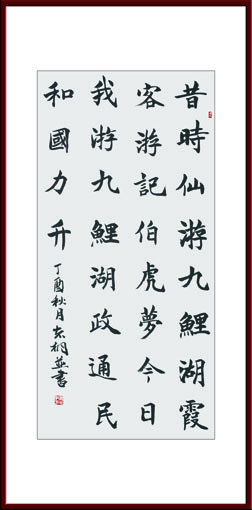 昔時仙游九鯉湖霞
客游記伯虎夢今日
我游九鯉湖政通民
和國力升
丁酉秋月